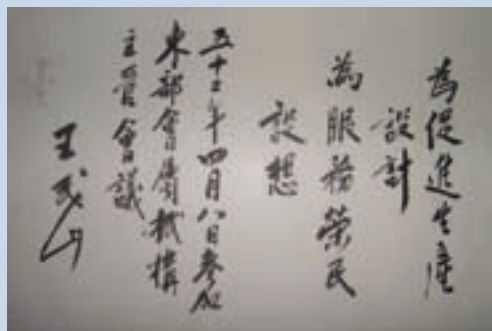 為促進生產
設計
為服務榮民
設想
五十年四月八日參加
東部會屬機構
主管會議
王